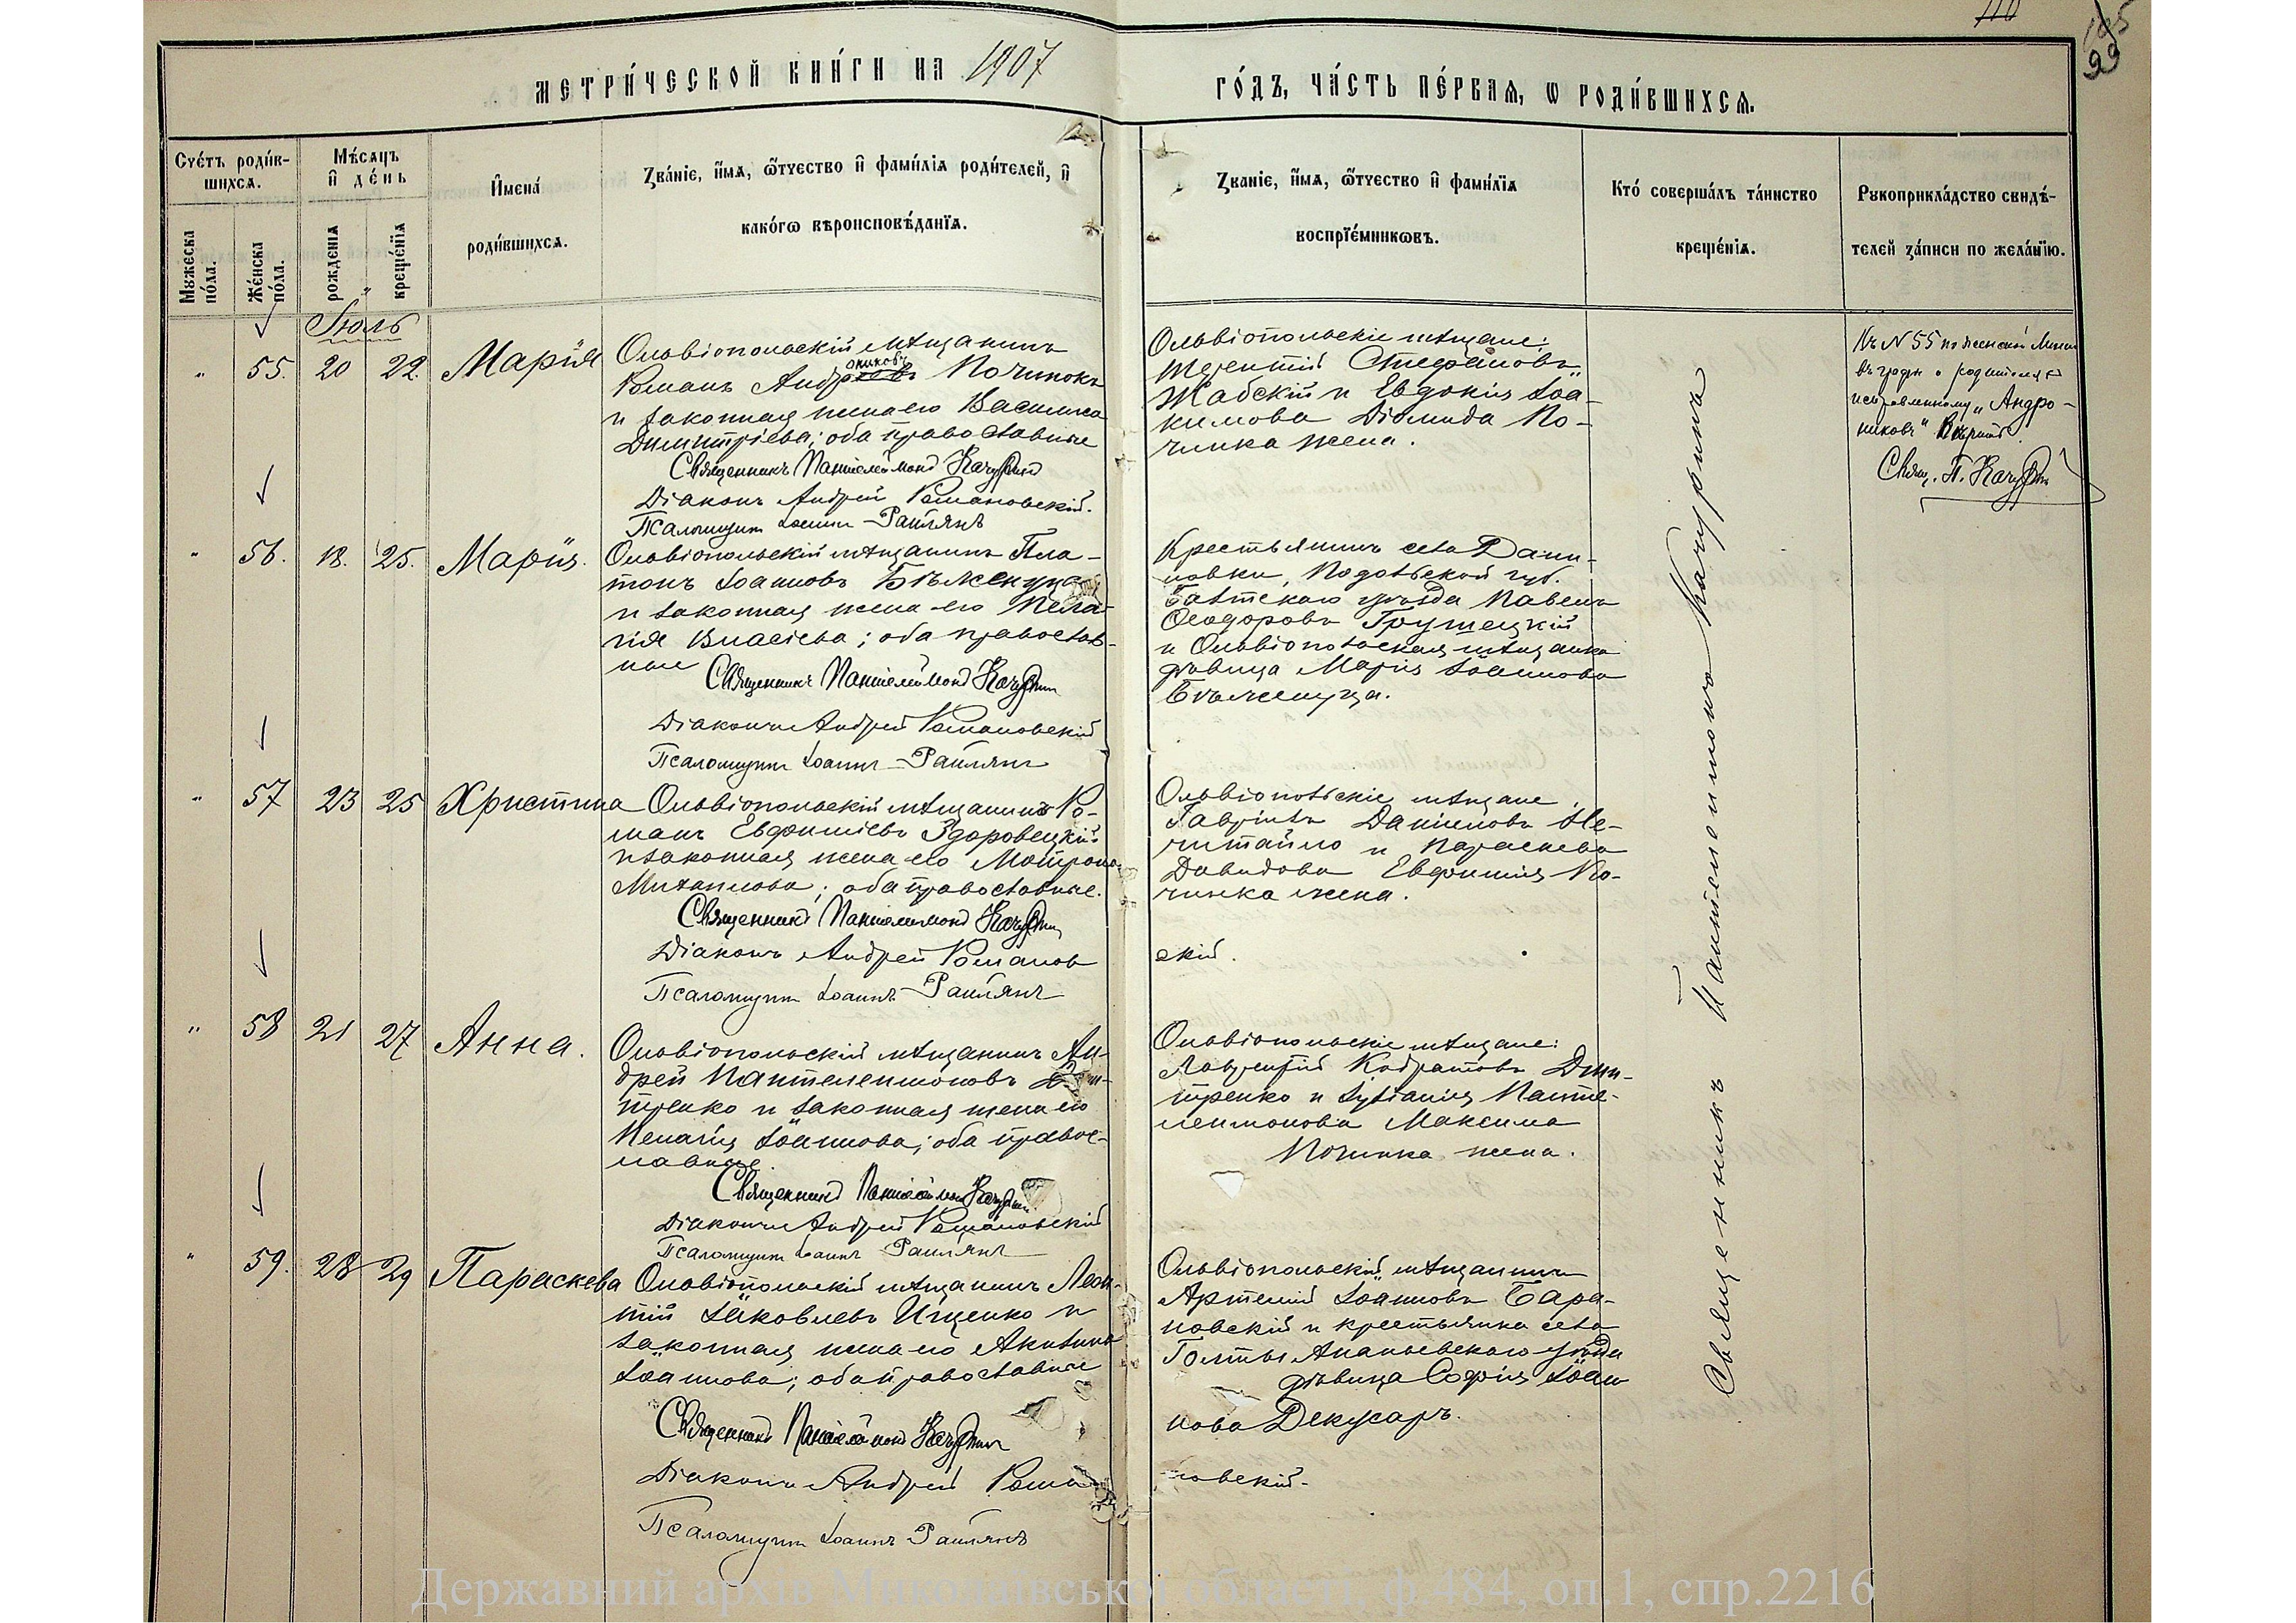 110
195
99
МЕТРИ́ЧЕСКОЙ КНИ́ГИ НА 1907
ГО́ДЪ, ЧА́СТЬ ПЕ́РВАѦ, Ѡ РОДИ́ВШИХСѦ.
Сче́тъ роди́в-
шихсѧ.
Мꙋжеска
по́ла.
Же́нска
по́ла.
Мѣ́сѧцъ
и҆ де́нь
рожденїѧ
креще́нїѧ
И҆мена́
роди́вшихсѧ.
Зва́нїе, и҆́мѧ, ѻ҆́тчество и҆ фами́лїѧ роди́телей, и҆
како́гѡ вѣроисповѣ́данїѧ.
Зва́нїе, и҆́мѧ, ѻ҆́тчество и҆ фами́лїѧ
воспрїе́мникѡвъ.
Кто́ соверша́лъ та́инство
креще́нїѧ.
Рꙋкоприкла́дство свидѣ́-
телей за́писи по жела́нїю.
Іюль
" 55. 20 22. Марія
Ольвіопольскій мѣщанинъ
Романъ Андрониковъ Починокъ
и законная жена его Василиса
Димитріева; оба православные
Священникъ Пантелеймонъ Качуринъ
Діаконъ Андрей Романовскій.
Псаломщикъ Іоаннъ Раилянъ
Ольвіопольскіе мѣщане:
Терентій Стефановъ
Жабскій и Евдокія Іоа-
кимова Діомида По-
чинка жена.
Къ N 55 по женской линіи
въ графѣ о родителяхъ
исправленному "Андро-
никовъ" Вѣрить.
Свящ. П. Качуринъ
" 56. 18. 25. Марія.
Ольвіопольскій мѣщанинъ Пла-
тонъ Іоанновъ Бѣженуца
и законная жена его Пела-
гія Власіева; оба православ-
ные
Священникъ Пантелеймонъ Качуринъ
Діаконъ Андрей Романовскій
Псаломщикъ Іоаннъ Раилянъ
Крестьянинъ села Дани-
ловки, Подольской губ.
Балтскаго уѣзда Павелъ
Ѳеодоровъ Грушецкій
и Ольвіопольская мѣщанка
дѣвица Марія Іоаннова
Бѣженуца.
" 57 23 25 Христина
Ольвіопольскій мѣщанинъ Ро-
манъ Евфиміевъ Здоровецкій
и законная жена его Матрона
Михаилова; оба православные.
Священникъ Пантелеймонъ Качуринъ
Діаконъ Андрей Романов
скій.
Псаломщикъ Іоаннъ Раилянъ
Ольвіопольскіе мѣщане
Гавріилъ Даніиловъ Не-
читайло и Параскева
Давидова Евфимія По-
чинка жена.
" 58 21 27 Анна.
Ольвіопольскій мѣщанинъ Ан-
дрей Пантелеимоновъ Дми-
тренко и законная жена его
Пелагія Іоаннова; оба правос-
лавные.
Священникъ Пантелеймонъ Качуринъ
Діаконъ Андрей Романовскій
Псаломщикъ Іоаннъ Раилянъ
Ольвіопольскіе мѣщане:
Лаврентій Кодратовъ Дми-
тренко и Іуліанія Панте-
леимонова Максима
Починка жена.
" 59. 28 29 Параскева
Ольвіопольскій мѣщанинъ Леон-
тій Іаковлевъ Ищенко и
законная жена его Акилина
Іоаннова; оба православные
Священникъ Пантелеймонъ Качуринъ
Діаконъ Андрей Рома
новскій.
Псаломщикъ Іоаннъ Раилянъ
Ольвіопольскій мѣщанинъ
Артемій Іоанновъ Бара-
новскій и крестьянка села
Голты Ананьевскаго уѣзда
дѣвица Софія Іоан
нова Декусаръ.
Священникъ Пантелеимонъ Качуринъ
Державний архів Миколаївської області, ф.484, оп.1, спр.2216